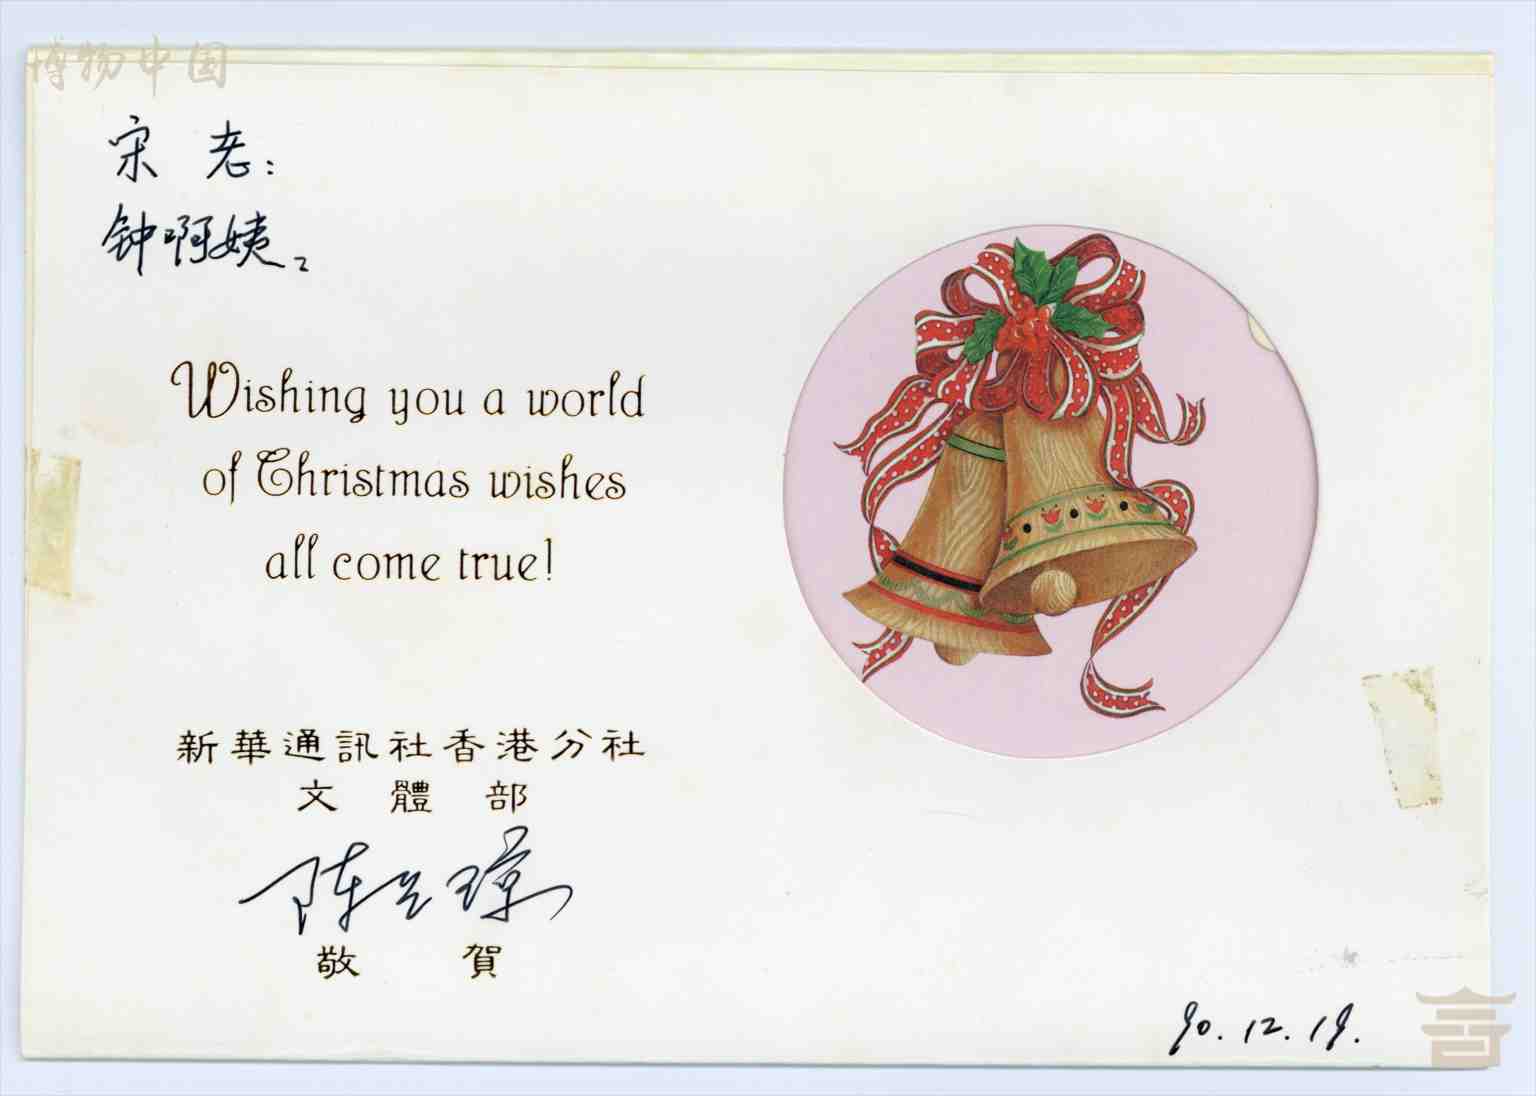 博物中国
宋老：
钟啊姨：
Wishing you a world
of Christmas wishes
all come true!
新華通訊社香港分社
文體部
陈
敬賀
90.12.19.